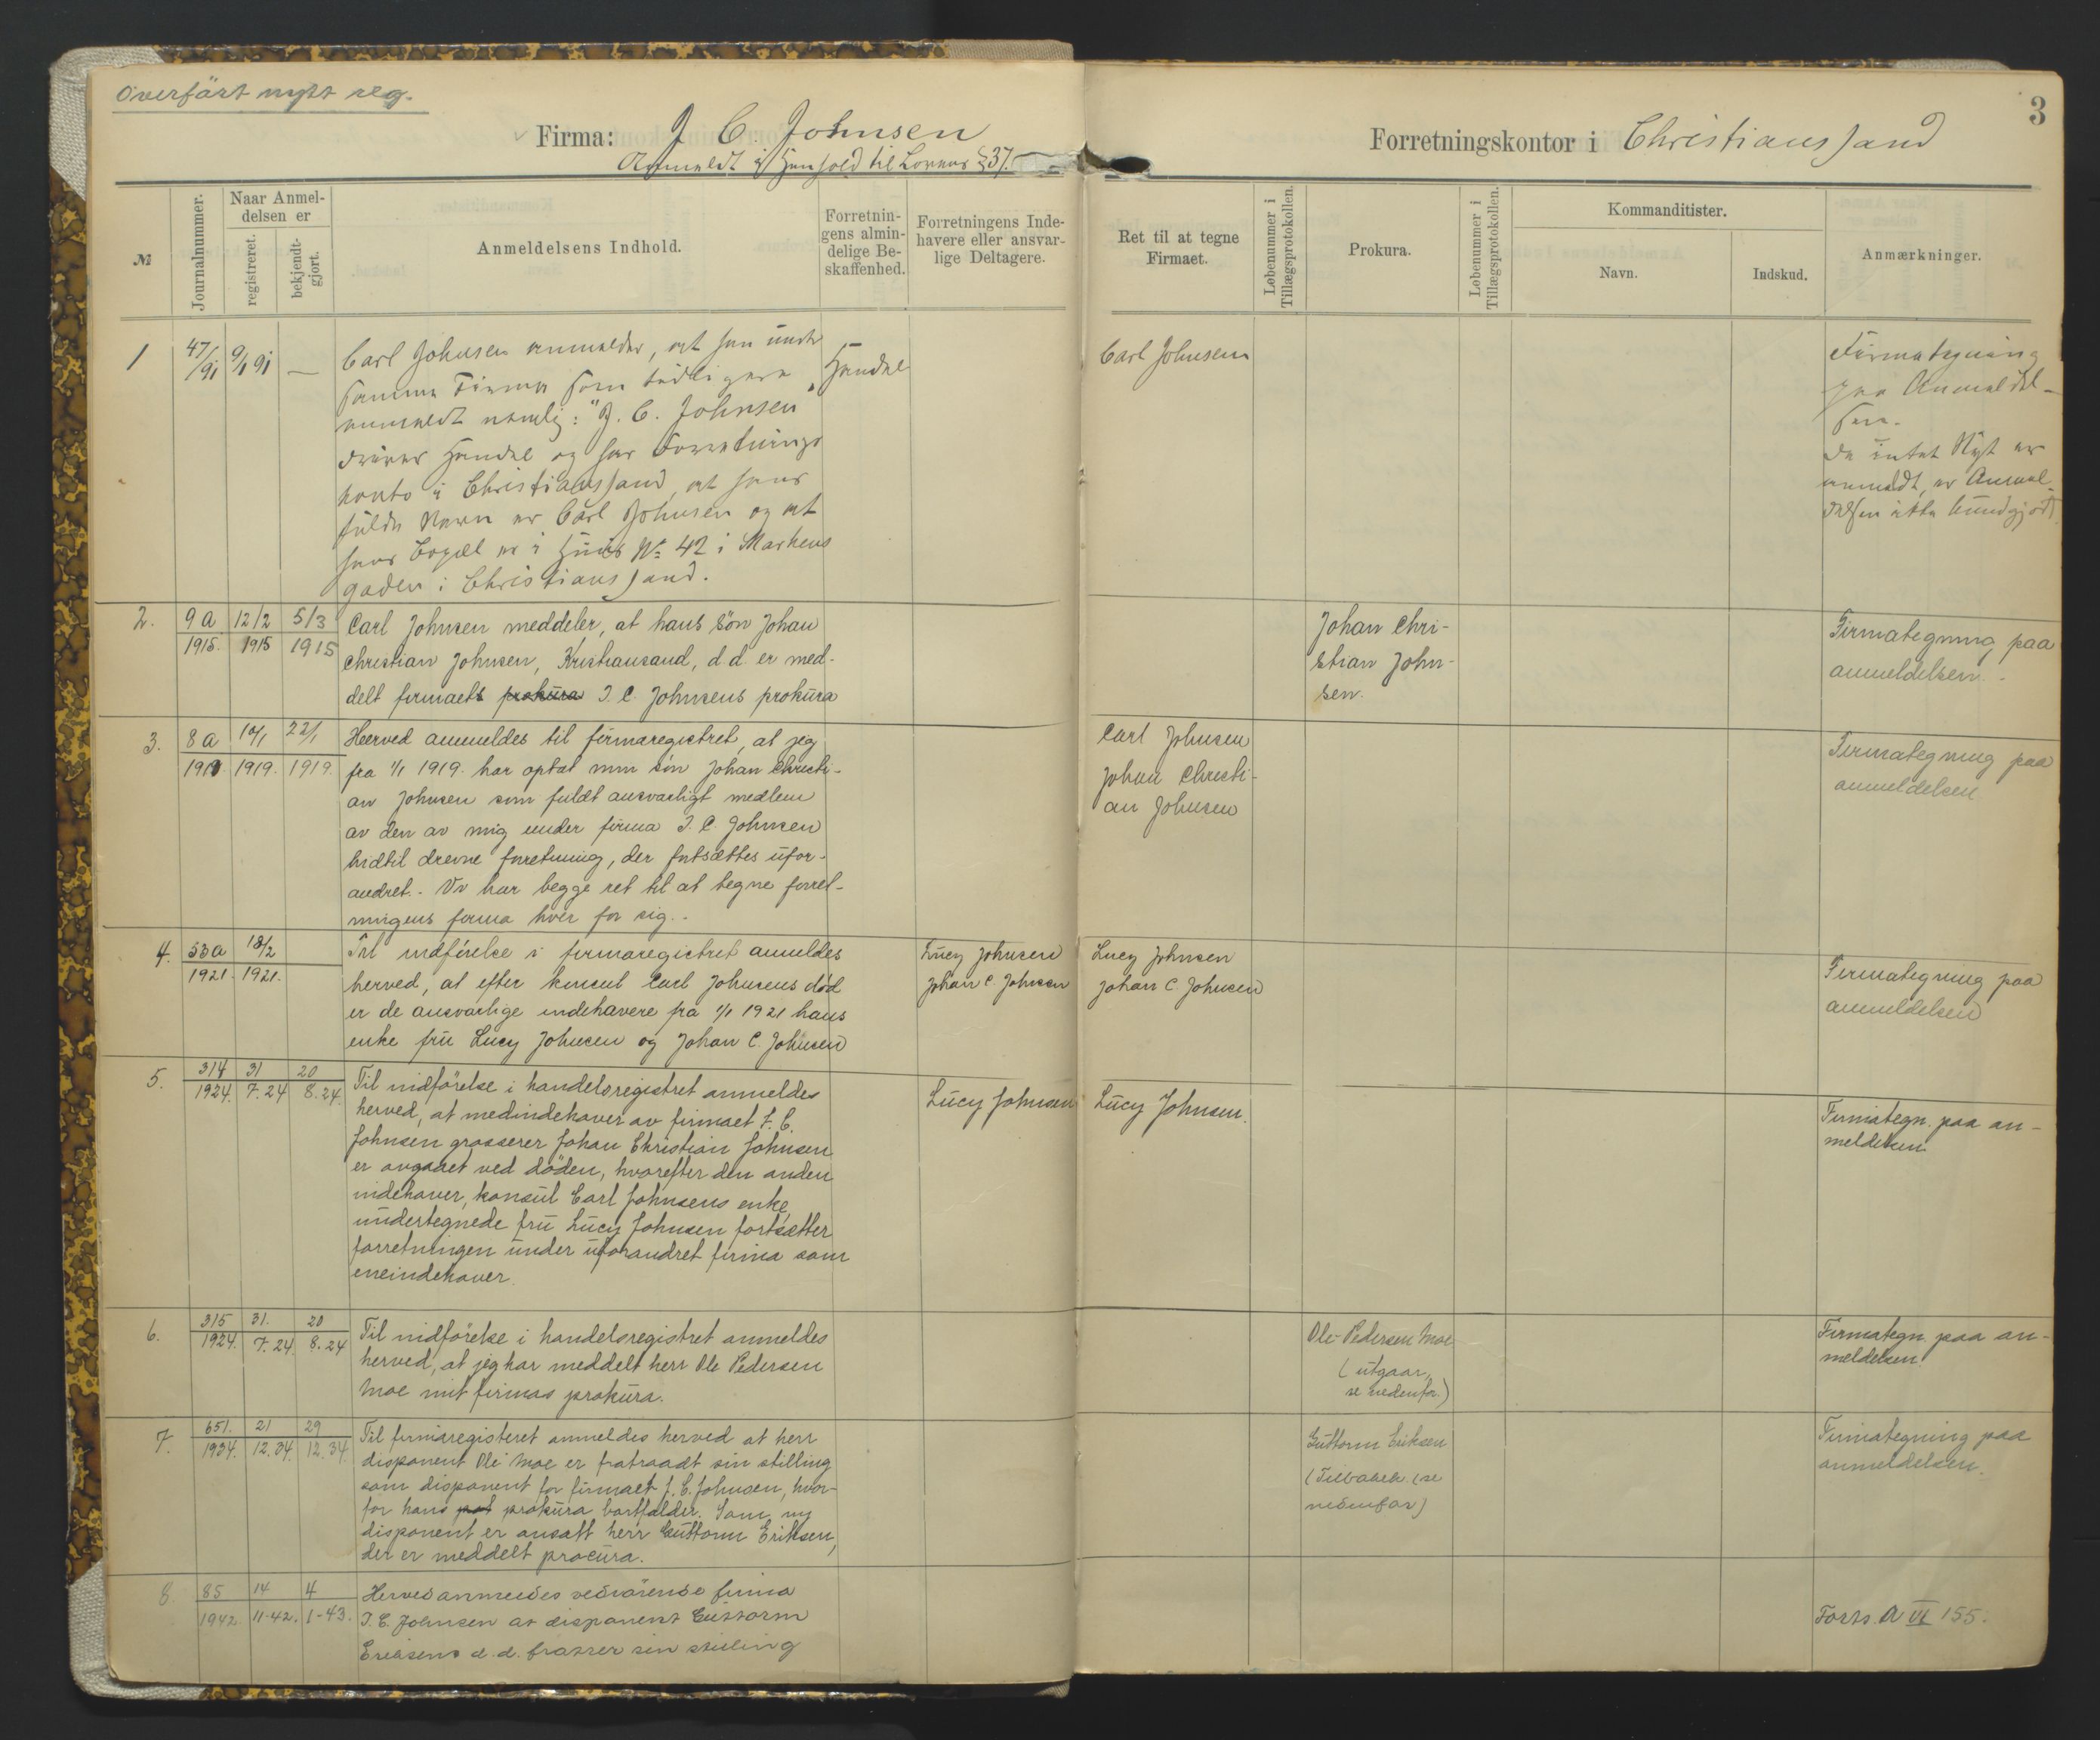 Overfört nytt reg.
3
Firma: J C. Johnsen
Anmeldt i Henhold til Lovens § 37.
Forretningskontor i Christianssand
№
Journalnummer.
Naar Anmel-
delsen er
registreret.
bekjendt-
gjort.
Anmeldelsens Indhold.
Forretnin-
gens almin-
delige Be-
skaffenhed.
Forretningens Inde-
havere eller ansvar-
lige Deltagere.
Ret til at tegne
Firmaet.
Løbenummer i
Tillægsprotokollen.
Prokura.
Løbenummer i
Tillægsprotokollen.
Kommanditister.
Navn.
Indskud.
Anmærkninger.
1
47/91
9/1 91
—
Carl Johnsen anmelder, at han under
samme Firma som tidligere
anmeldt nemlig: "J. C. Johnsen"
driver Handel og har Forretnings
konto i Christianssand, at hans
fulde Navn er Carl Johnsen og at
hans Bopæl er i Huus № 42 i Markens
gaden i Christianssand.
Handel
Carl Johnsen
Firmategning
paa Anmeldel-
sen.
Da intet Nyt er
anmeldt, er Anmel-
delsen ikke kundgjort
2.
9 a
1915.
12/2
1915
5/3
1915
Carl Johnsen meddeler, at hans sön Johan
Christian Johnsen, Kristiansand, d.d. er med-
delt firmaets prokura J. C. Johnsens prokura
Johan Chri-
stian John-
sen.
Firmategning paa
anmeldelsen.
3.
8 a
1919
10/1
1919.
22/1
1919.
Herved anmeldes til firmaregistret, at jeg
fra 1/1 1919. har optat min sön Johan Christi-
an Johnsen som fuldt ansvarligt medlem
av den av mig under firma J. C. Johnsen
hidtil drevne forretning, der fortsættes ufor-
andret. Vi har begge ret til at tegne forret-
ningens firma hver for sig.
Carl Johnsen
Johan Christi-
an Johnsen
Firmategning paa
anmeldelsen
4.
53 a
1921.
18/2
1921.
Til indförelse i firmaregistret anmeldes
herved, at efter konsul Carl Johnsens död
er de ansvarlige indehavere fra 1/1 1921 hans
enke frü Lucy Johnsen og Johan C. Johnsen
Lucy Johnsen
Johan C. Johnsen
Lucy Johnsen
Johan C Johnsen
Firmategning paa
anmeldelsen
5.
314
1924.
31
7.24
20
8.24.
Til indförelse i handelsregistret anmeldes
herved, at medindehaver av firmaet J. C.
Johnsen grosserer Johan Christian Johnsen
er avgaaet ved döden, hvorefter den anden
indehaver, konsul Carl Johnsens enke,
undertegnede frü Lucy Johnsen fortsætter
forretningen under uforandret firma som
eneindehaver.
Lucy Johnsen
Lucy Johnsen.
Firmategn. paa an-
meldelsen
6.
315
1924.
31.
7.24.
20
8.24
Til indförelse i handelsregistret anmeldes
herved, at jeg har meddelt herr Ole Pedersen
Moe mit firmas prokura.
Ole Pedersen Moe
(utgaar,
se nedenfor.)
Firmategn. paa an-
meldelsen.
7.
651.
1934.
21
12.34.
29
12.34.
Til firmaregisteret anmeldes herved at herr
disponent Ole Moe er fratraadt sin stilling
som disponent for firmaet J. C. Johnsen, hvor-
for hans pro prokura bortfalder. Som ny
disponent er ansatt herr Guttorm Eriksen,
der er meddelt procura.
Guttorm Eriksen
(Tilbakek. (se
nedenfor)
Firmategning paa
anmeldelsen.
8.
85
1942.
14
11-42.
4
1-43.
Herved anmeldes vedrörende firma
J. C. Johnsen at disponent Guttorm
Eriksen d.d. fratrer sin stilling
Forts. A VI 155.